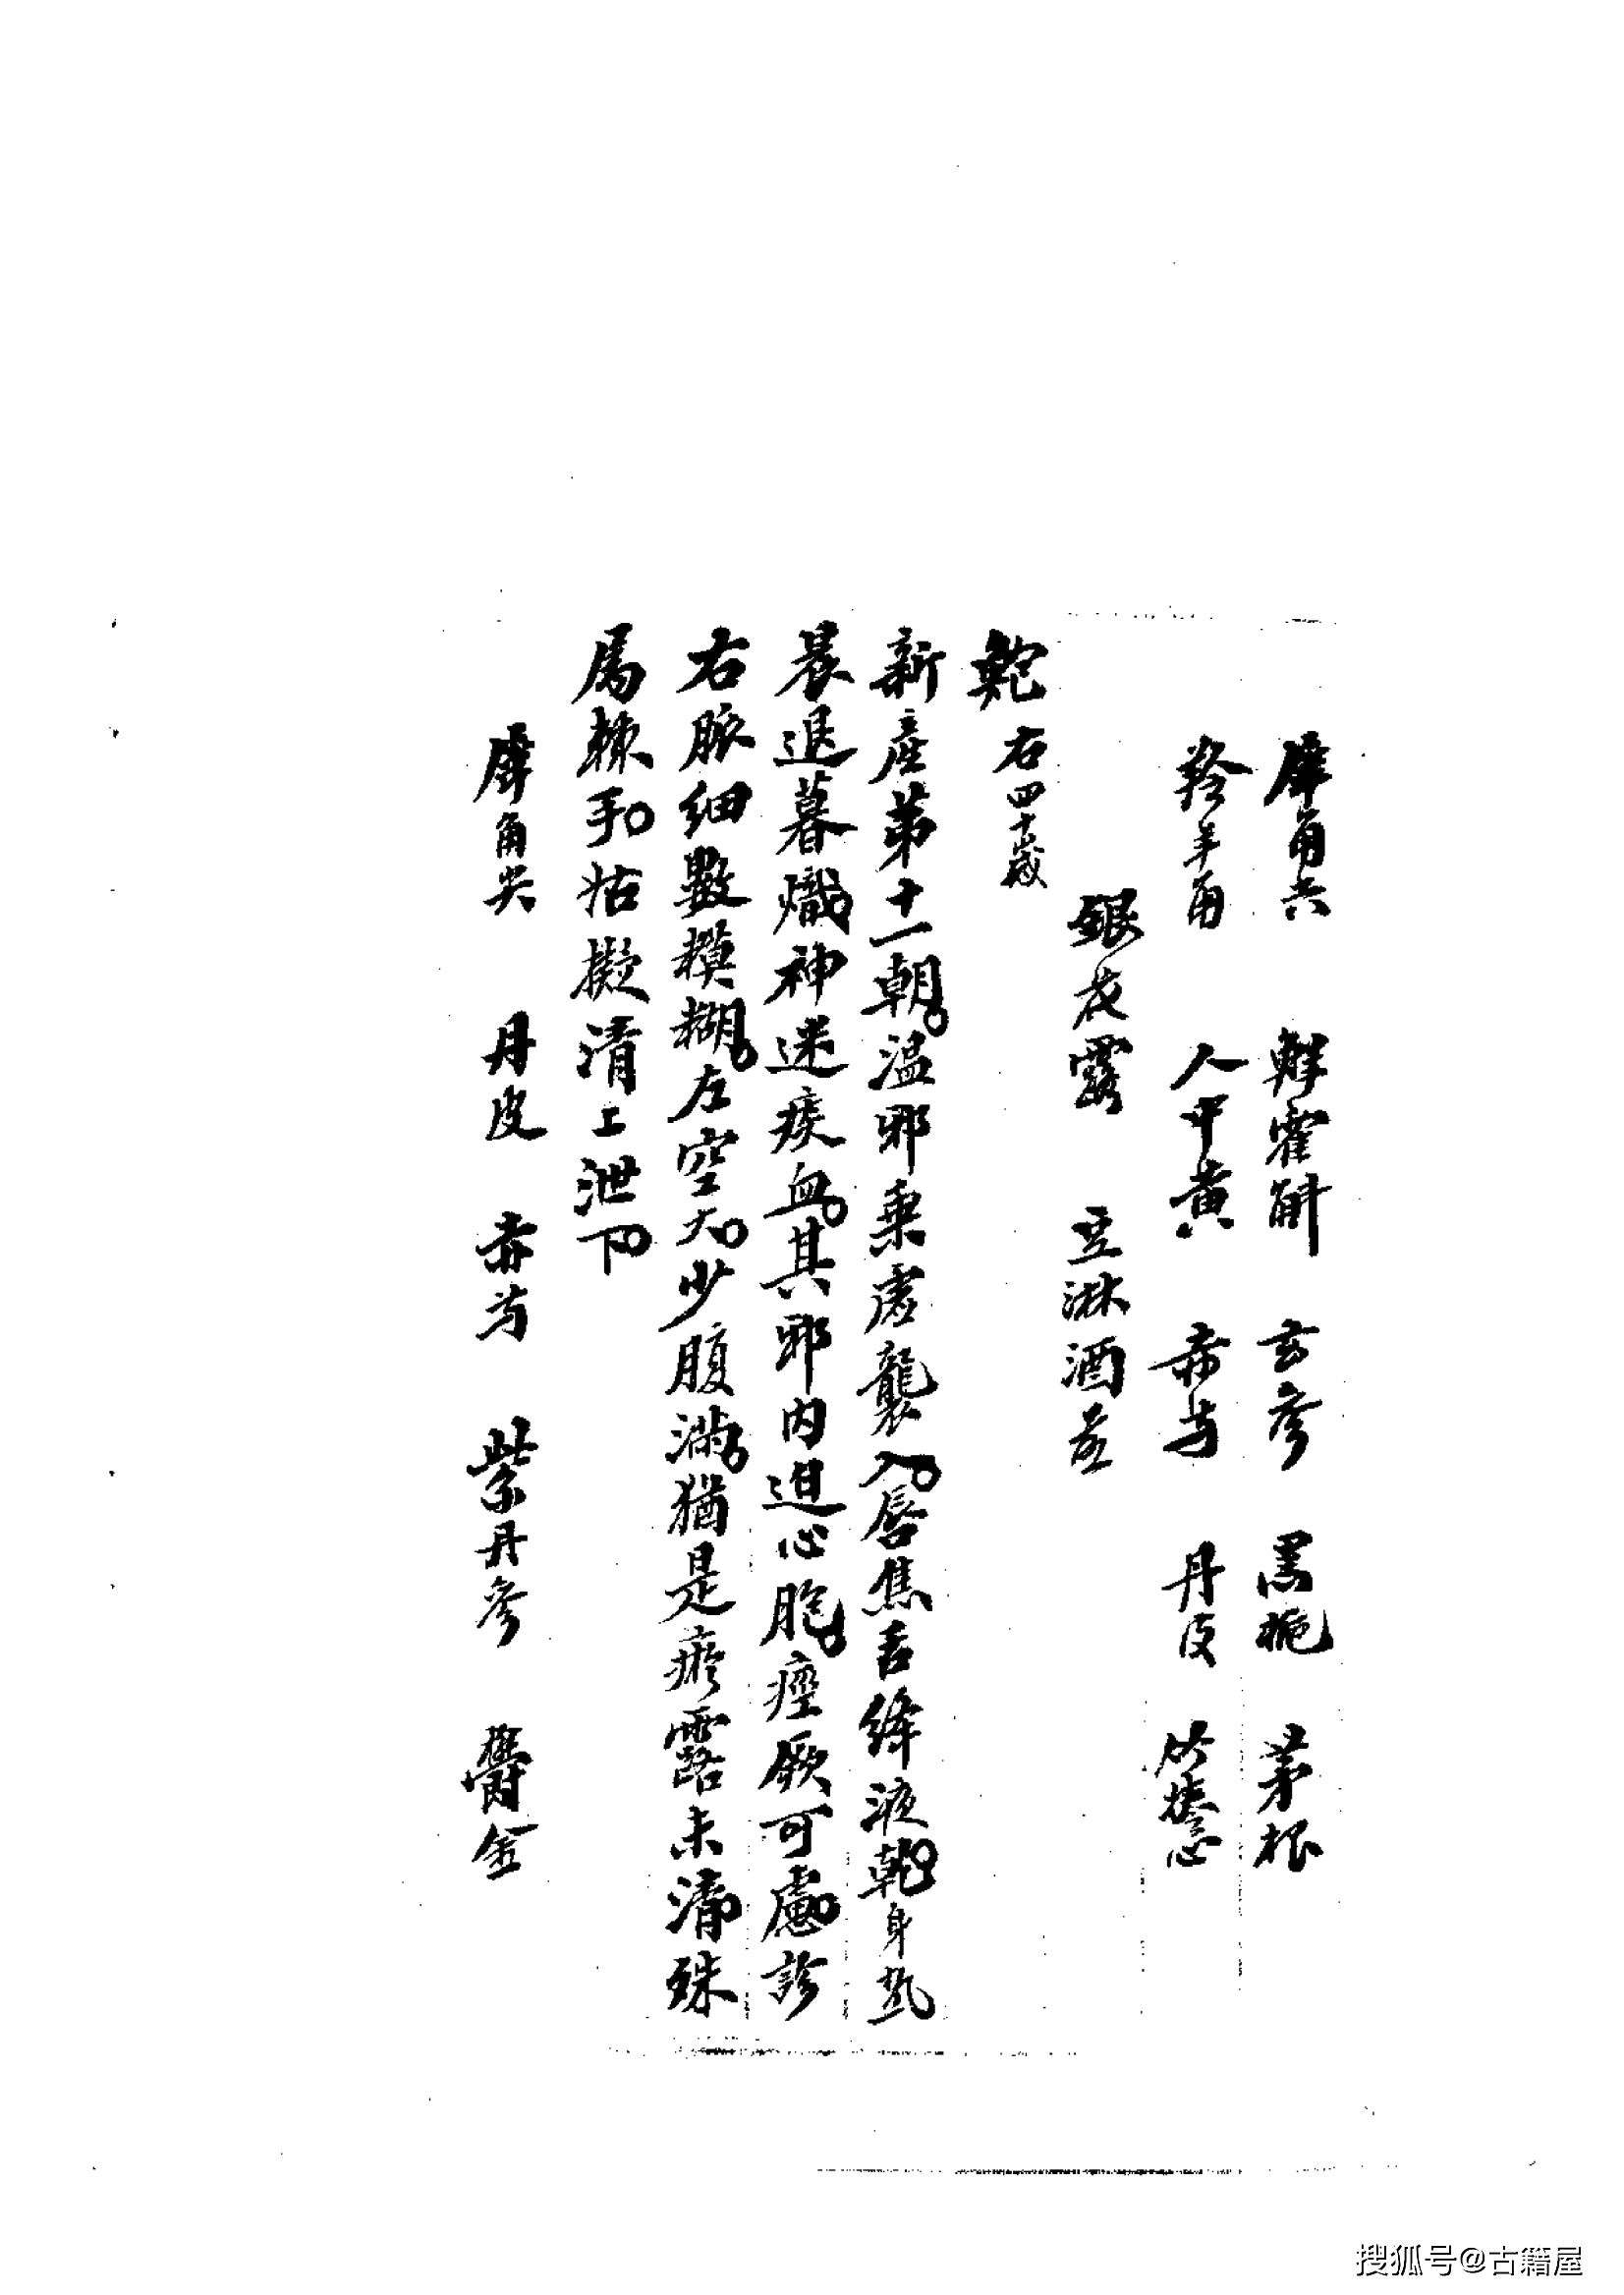 犀角尖 鮮霍斛 玄參 黑梔 茅根
羚羊角 人中黄 赤芍 丹皮 竹捲心
銀花露 豆淋酒
鮑右四十歲
新產第十一朝。温邪乘虚襲入。唇焦舌絳液乾。身熱
晨退暮熾。神迷痰血。其邪内迫心胞。痙厥可慮。診
右脈細數模糊。左空大。少腹滿。猶是瘀露未清。殊
屬棘手。姑擬清上泄下。
犀角尖 丹皮 赤芍 紫丹參 鬱金
搜狐号@古籍屋